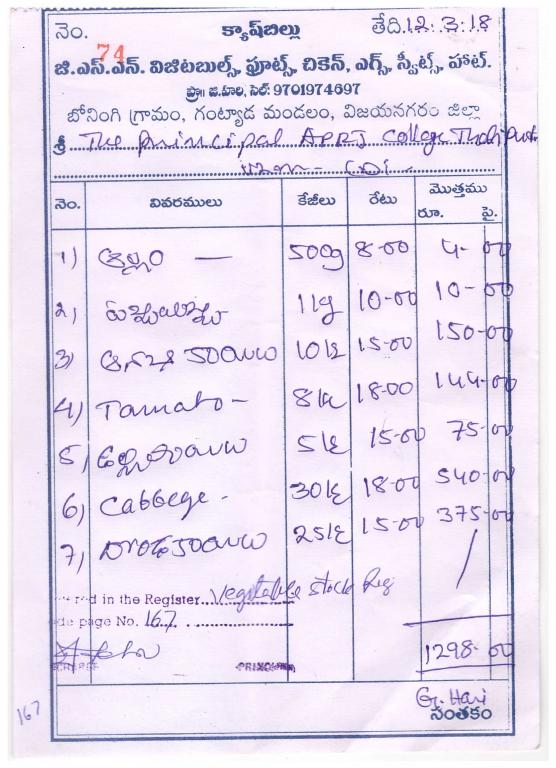 నెం. 74 క్యాష్‌బిల్లు తేది. 12.3.18
జి.ఎస్.ఎన్. విజిటబుల్స్, ఫ్రూట్స్, చికెన్, ఎగ్స్, స్వీట్స్, హాట్.
ప్రొ॥ జి.హరి, సెల్: 9701974697
బోనింగి గ్రామం, గంట్యాడ మండలం, విజయనగరం జిల్లా
శ్రీ The principal APRJ College
నెం. వివరములు కేజీలు రేటు మొత్తము
రూ. పై.
1) అల్లం — 500g 8-00 4-00
2) 10-00 10-00
3) 10k 15-00 150-00
4) Tamato - 8k 18-00 144-00
5) 5k 15-00 75-00
6) Cabbege - 30k 18-00 540-00
7) దొండకాయలు 25k 15-00 375-00
red in the Register Vegetable stock Reg
de page No. 167
1298-00
PRINCIPAL
G. Hari
సంతకం
167